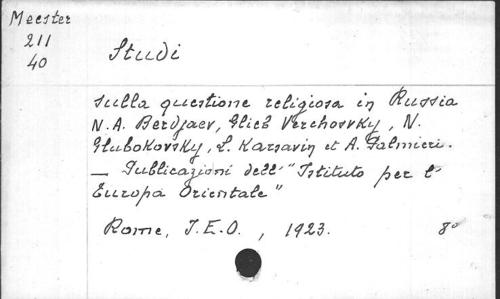 Meester
211
40
Studi
sulla questione religiosa in Russia
N. A. Berdjaev, Glieb Verchovsky, N.
Glubokovsky, L. Karsavin et A. Palmieri.
— Publicazioni dell' "Istituto per l'
Europa Orientale"
Rome, I.E.O., 1923. 8°